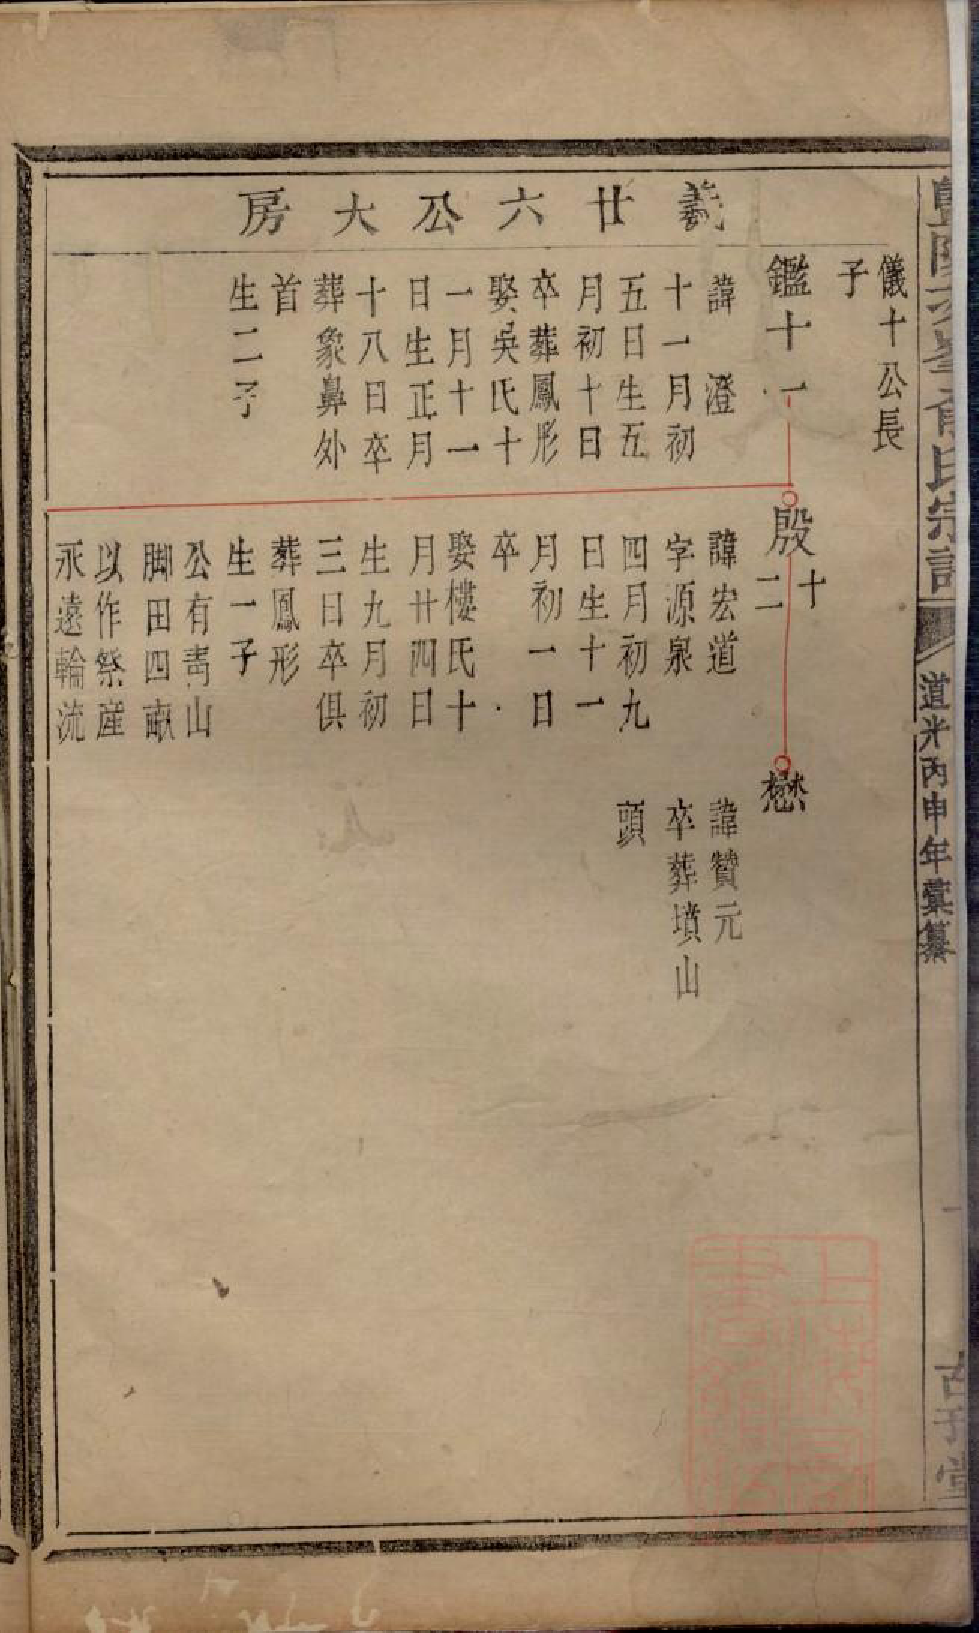 道光丙申年彙纂
義廿六公大房
儀十公長
子
鑑十一
諱澄
十一月初
五日生五
月初十日
卒葬鳳形
娶吳氏十
一月十一
日生正月
十八日卒
葬象鼻外
首
生二子
殷十二
諱宏道
字源泉
四月初九
日生十一
月初一日
卒
娶樓氏十
月廿四日
生九月初
三日卒俱
葬鳳形
生一子
公有青山
脚田四畝
以作祭產
永遠輪流
懋
諱贊元
卒葬墳山
頭